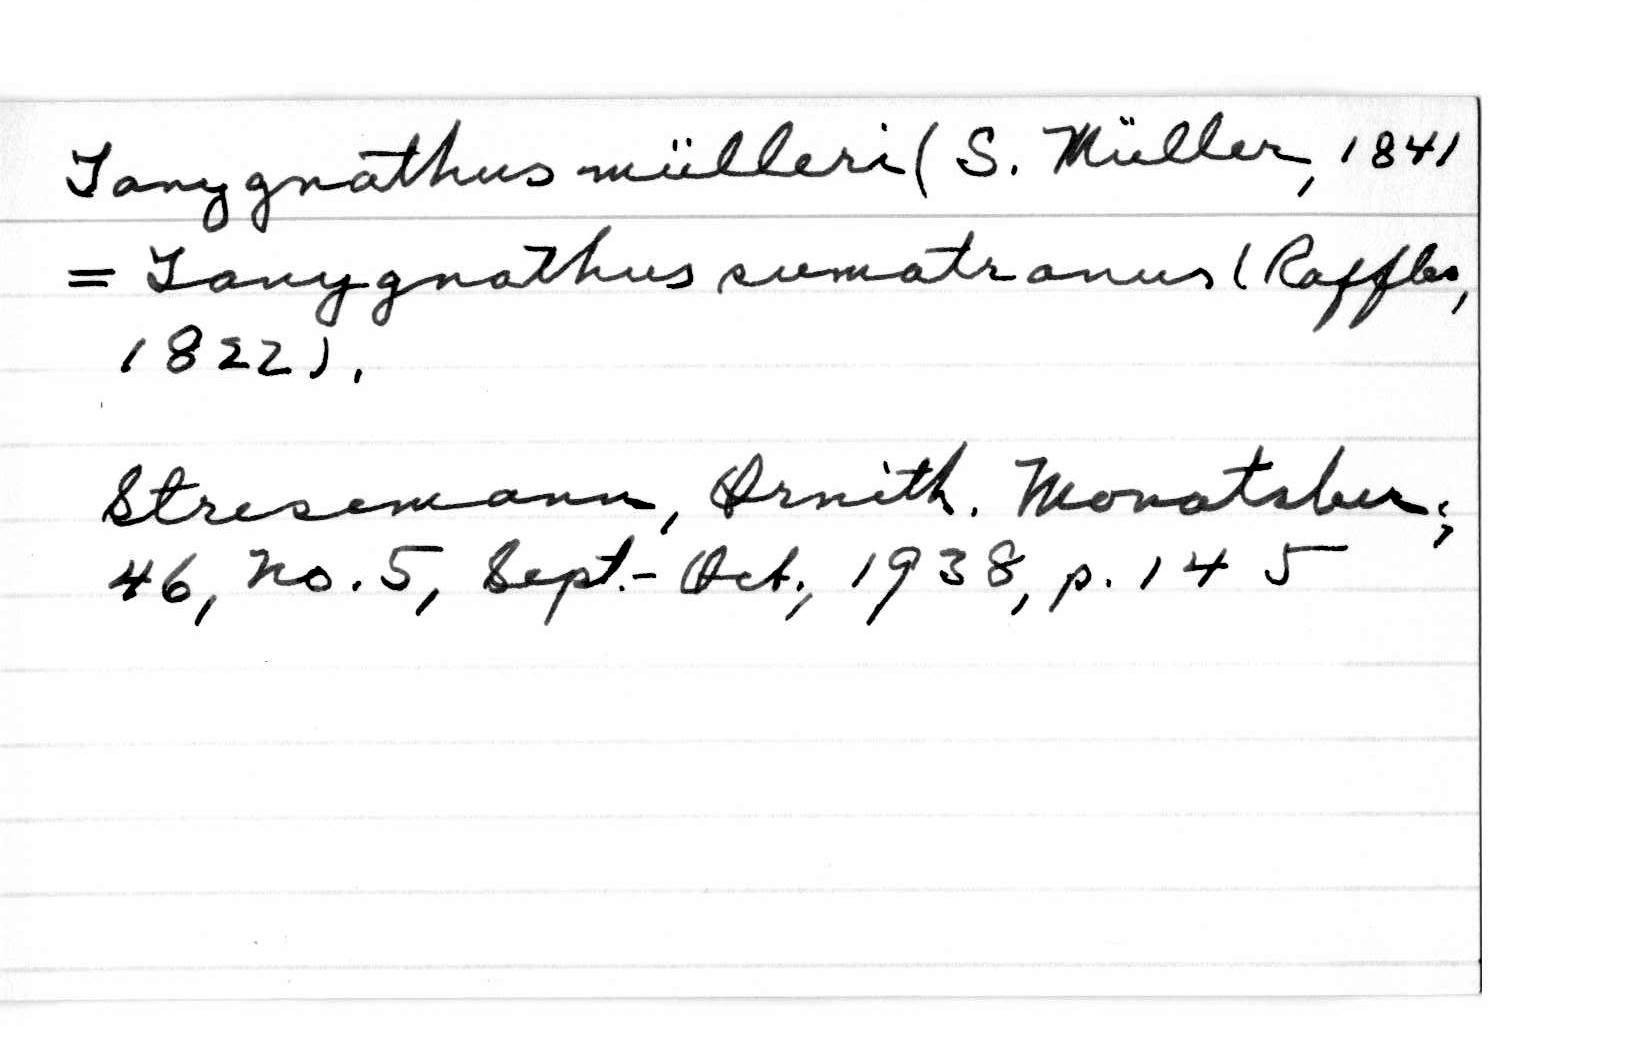 Tanygnathus mülleri (S. Müller, 1841
= Tanygnathus sumatranus (Raffles,
1822).
Stresemann, Ornith. Monatsber.,
46, no. 5, Sept.-Oct., 1938, p. 145